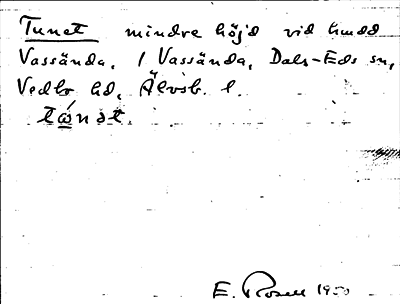 Tunet mindre höjd vid hmdd
Vassända. / Vassända, Dals-Eds sn,
Vedbo hd, Älvsb. l.
tánət.
E. Rosell 1950